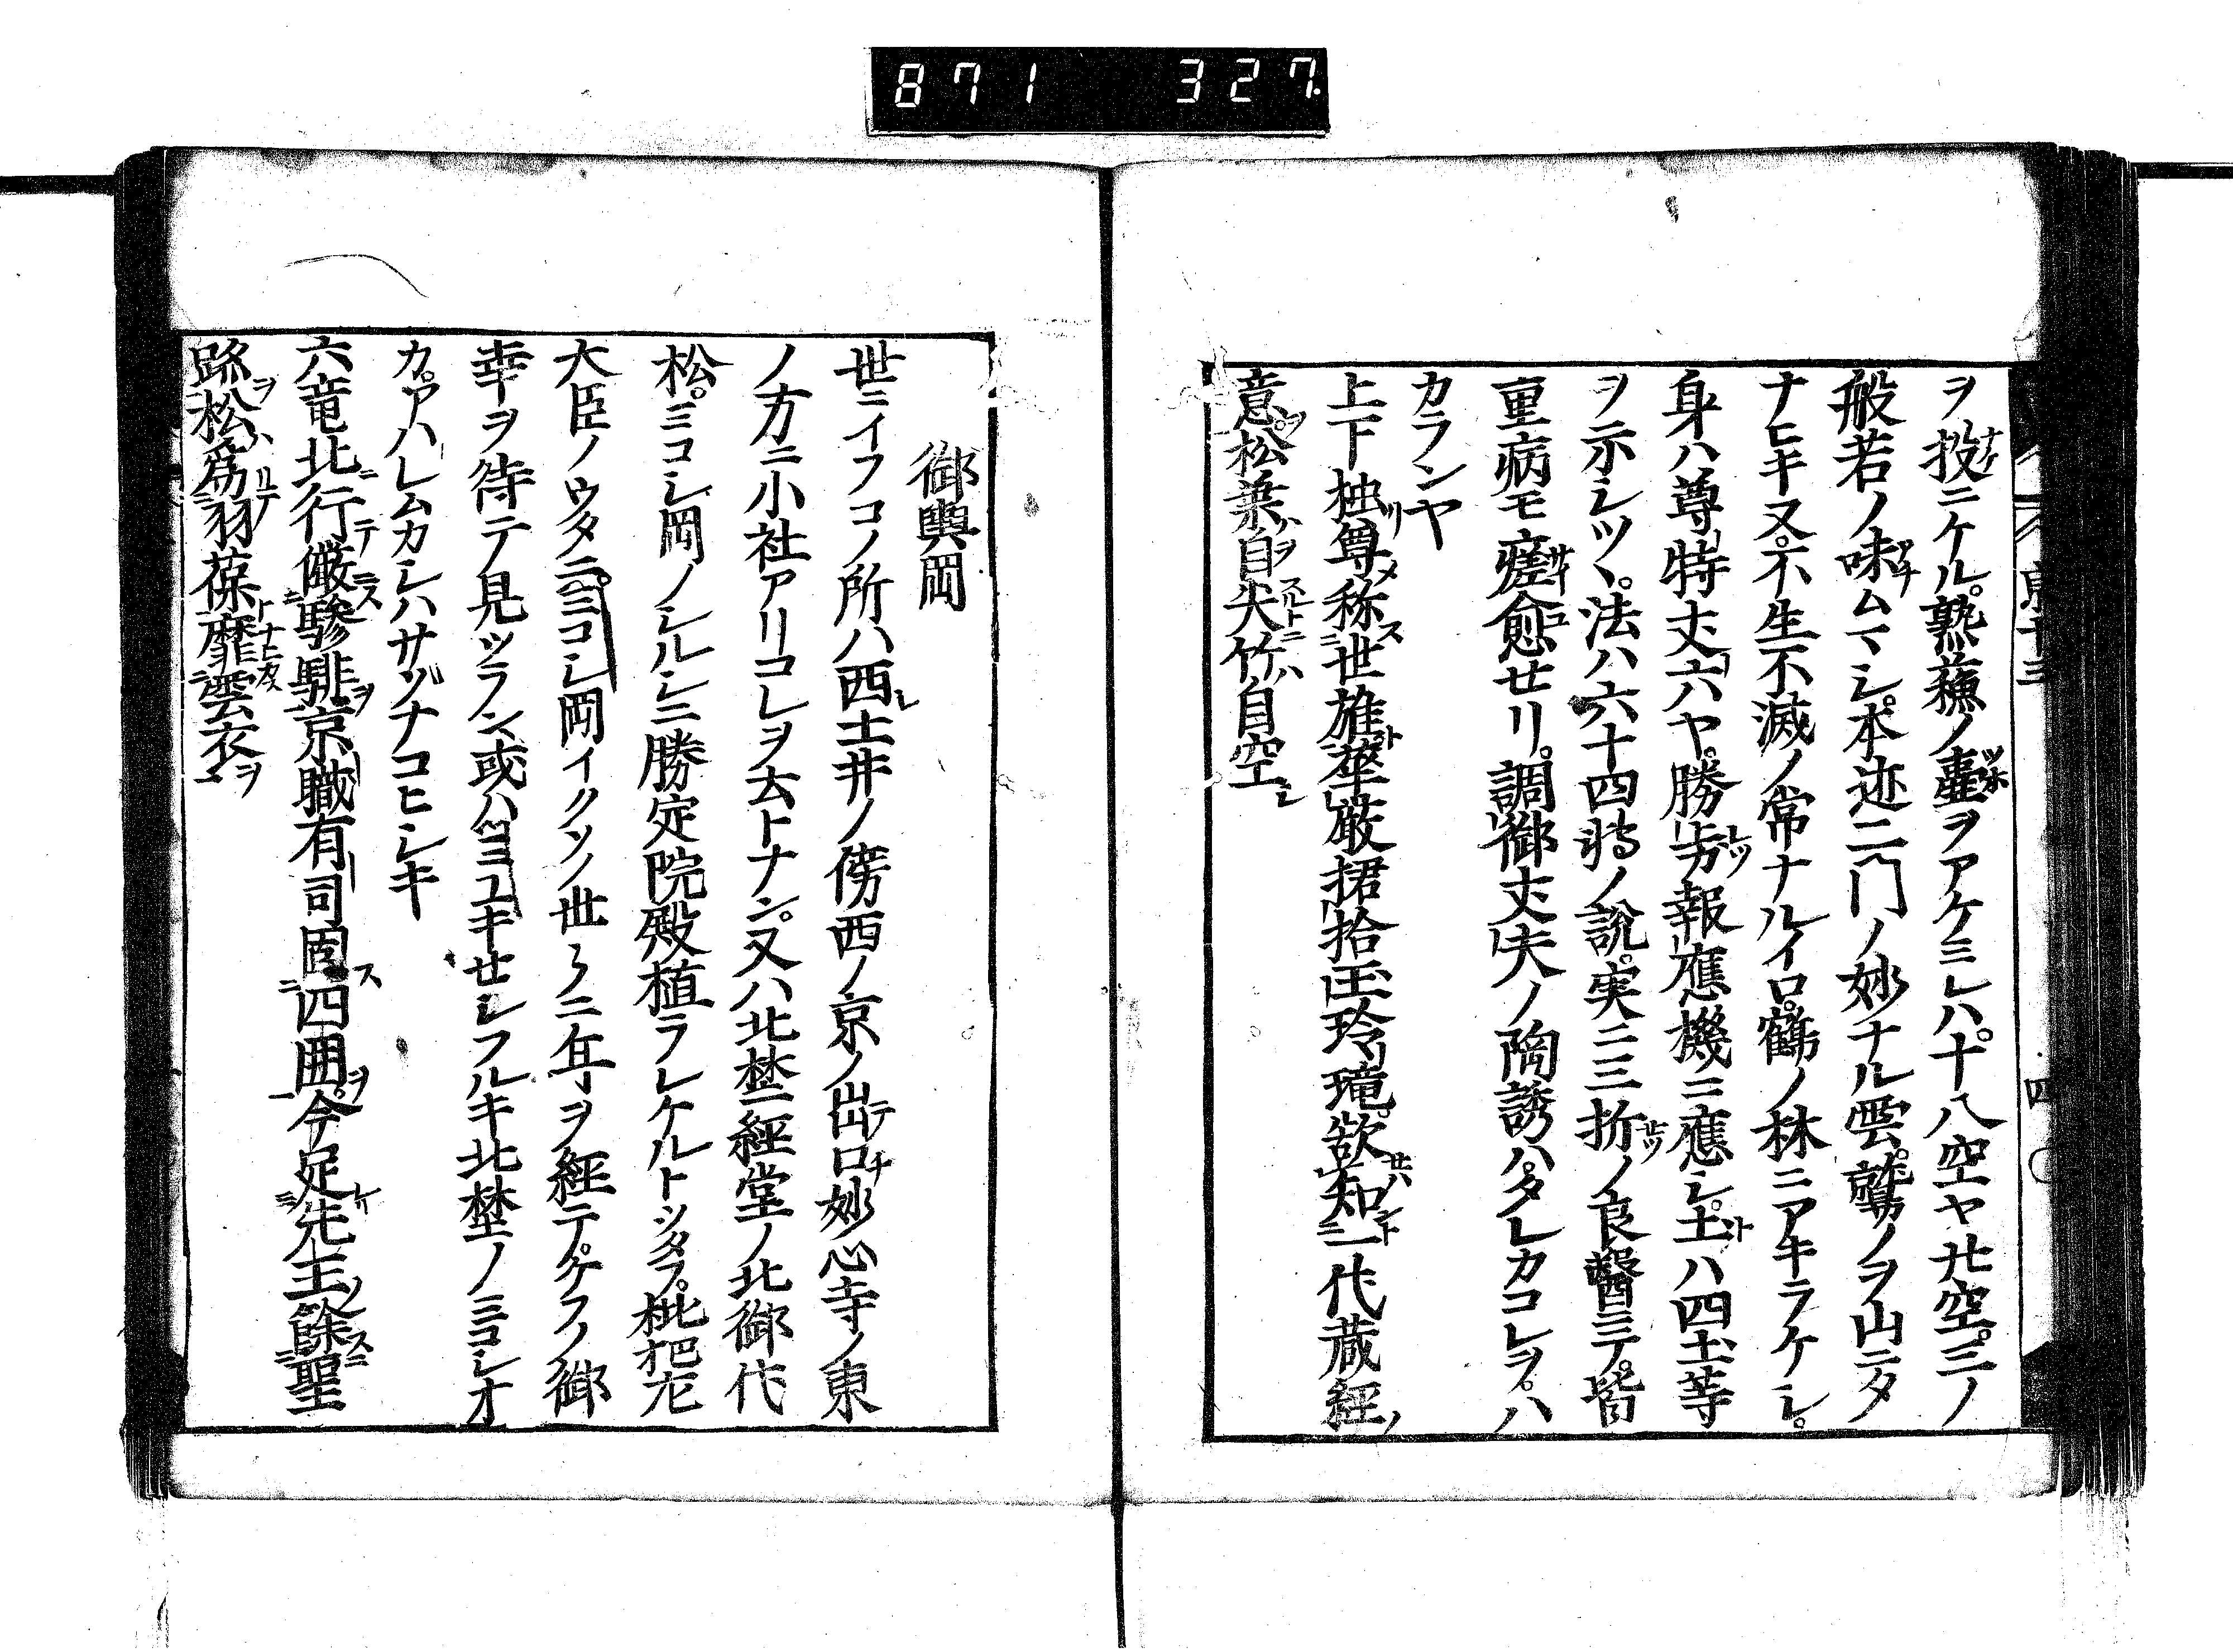 871 327
ヲ投ニケル。熟蘓ノ壷ヲアケミレハ。十八空ヤ廿空。三ノ
般若ノ味ムマシ。本迹二门ノ妙ナル雲。鷲ノヲ山ニタ
ナヒキ又。不生不滅ノ常ナルイロ。鶴ノ林ニアキラケシ。
身ハ尊特丈六ヤ。勝劣報應機ニ應シ。土ハ四土等
ヲ示シツヽ。法ハ六十四時ノ說。実ニ三折ノ良醫ニテ。皆
重病モ瘥愈セリ。調御丈夫ノ陶誘ハ。タレカコレヲ。ハ
カランヤ
上下独尊称世雄華厳捃拾玉玲瓏。欲知一代蔵経
意。松葉自尖竹自空
四
御輿岡
世ニイフコノ所ハ西土井ノ傍西ノ京ノ出口妙心寺ノ東
ノ方ニ小社アリコレヲ去トナン。又ハ北埜経堂ノ北御代
松。ミコシ岡ノシルシニ勝定院殿植ラレケルトシタフ。枇杷左
大臣ノウタニミコシ岡イクソノ世〻ニ年ヲ經テケフノ御
幸ヲ待テ見ツラン或ハミユキセシフルキ北埜ノミコシオ
カ。アハレムカシハサゾナコヒシキ
六竜北行儼驂騑京職有司固四囲。今足先王餘聖
跡松為羽葆靡雲衣